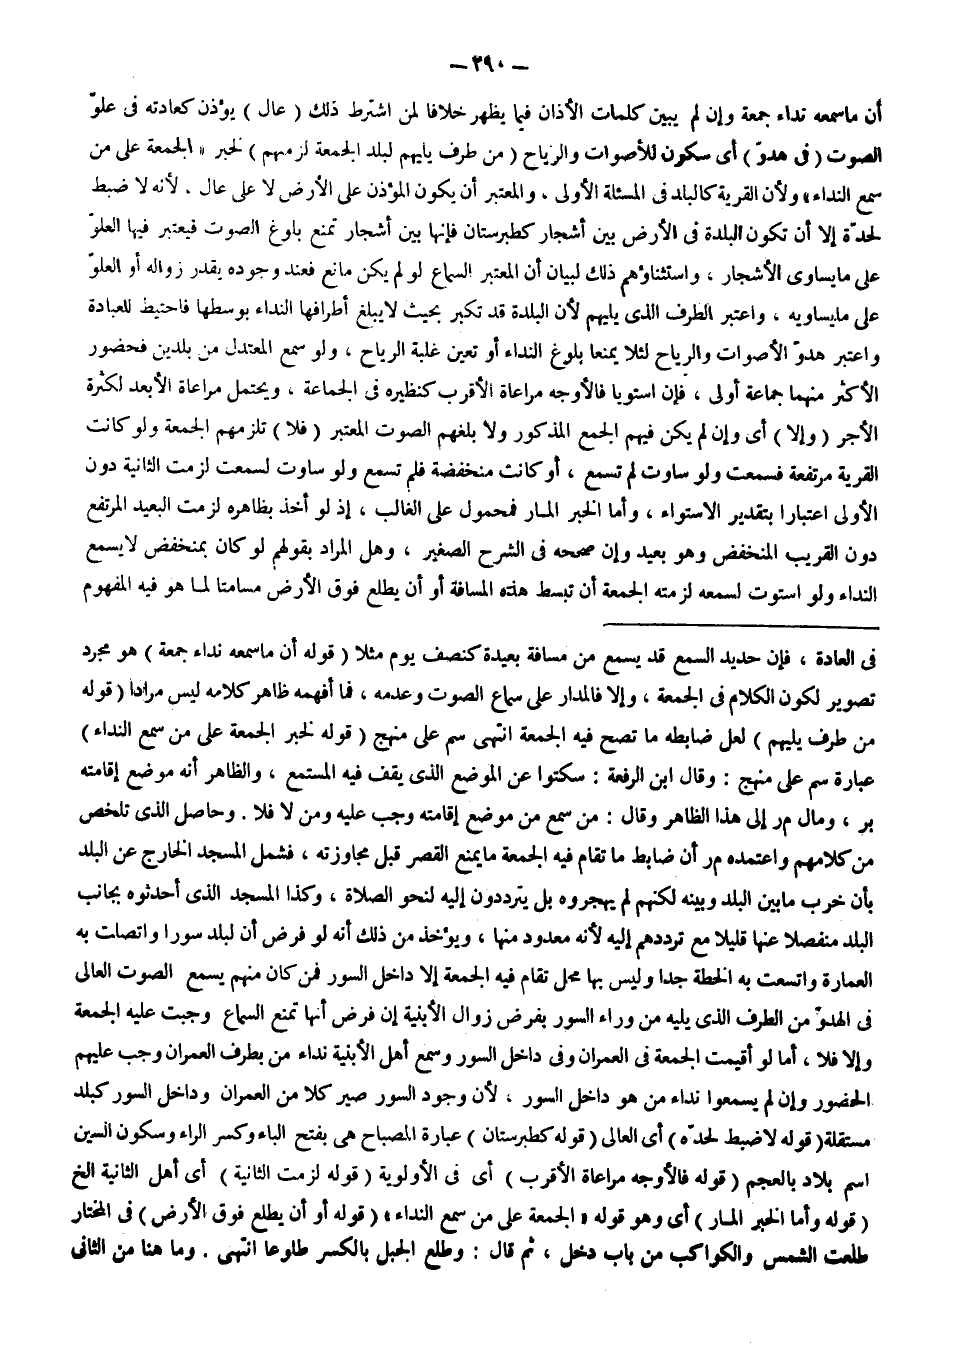 — ٢٩٠ —
أن ماسمعه نداء جمعة وإن لم يبين كلمات الأذان فيما يظهر خلافا لمن اشترط ذلك ( عال ) يؤذن كعادته فى علوّ
الصوت ( فى هدوّ ) أى سكون للأصوات والرياح ( من طرف يايهم لبلد الجمعة لزمهم ) لخبر « الجمعة على من
سمع النداء» ولأن القرية كالبلد فى المسئلة الأولى . والمعتبر أن يكون المؤذن على الأرض لا على عال . لأنه لا ضبط
لحدّة إلا أن تكون البلدة فى الأرض بين أشجار كطبرستان فإنها بين أشجار تمنع بلوغ الصوت فيعتبر فيها العلوّ
على مايساوى الأشجار ، واستثناؤهم ذلك لبيان أن المعتبر السماع لو لم يكن مانع فعند وجوده يقدر زواله أو العلوّ
على مايساويه ، واعتبر الطرف الذى يليهم لأن البلدة قد تكبر بحيث لايبلغ أطرافها النداء بوسطها فاحتيط للعبادة
واعتبر هدوّ الأصوات والرياح لئلا يمنعا بلوغ النداء أو تعين غلبة الرياح ، ولو سمع المعتدل من بلدين فحضور
الأكثر منهما جماعة أولى ، فإن استويا فالأوجه مراعاة الأقرب كنظيره فى الجماعة ، ويحتمل مراعاة الأبعد لكثرة
الأجر ( وإلا ) أى وإن لم يكن فيهم الجمع المذكور ولا بلغهم الصوت المعتبر ( فلا ) تلزمهم الجمعة ولو كانت
القرية مرتفعة فسمعت ولو ساوت لم تسمع ، أو كانت منخفضة فلم تسمع ولو ساوت لسمعت لزمت الثانية دون
الأولى اعتبارا بتقدير الاستواء ، وأما الخبر المـار فمحمول على الغالب ، إذ لو أخذ بظاهره لزمت البعيد المرتفع
دون القريب المنخفض وهو بعيد وإن صححه فى الشرح الصغير ، وهل المراد بقولهم لو كان بمنخفض لايسمع
النداء ولو استوت لسمعه لزمته الجمعة أن تبسط هذه المسافة أو أن يطلع فوق الأرض مسامتا لمـا هو فيه المفهوم
فى العادة ، فإن حديد السمع قد يسمع من مسافة بعيدة كنصف يوم مثلا ( قوله أن ماسمعه نداء جمعة ) هو مجرد
تصوير لكون الكلام فى الجمعة ، وإلا فالمدار على سماع الصوت وعدمه ، فما أفهمه ظاهر كلامه ليس مرادا (قوله
من طرف يليهم ) لعل ضابطه ما تصح فيه الجمعة انتهى سم على منهج ( قوله لخبر الجمعة على من سمع النداء )
عبارة سم على منهج : وقال ابن الرفعة : سكتوا عن الموضع الذى يقف فيه المستمع ، والظاهر أنه موضع إقامته
بر ، ومال مر إلى هذا الظاهر وقال : من سمع من موضع إقامته وجب عليه ومن لا فلا . وحاصل الذى تلخص
من كلامهم واعتمده مر أن ضابط ما تقام فيه الجمعة مايمنع القصر قبل مجاوزته ، فشمل المسجد الخارج عن البلد
بأن خرب مابين البلد وبينه لكنهم لم يهجروه بل يترددون إليه لنحو الصلاة ، وكذا المسجد الذى أحدثوه بجانب
البلد منفصلا عنها قليلا مع ترددهم إليه لأنه معدود منها ، ويؤخذ من ذلك أنه لو فرض أن لبلد سورا واتصلت به
العمارة واتسعت به الخطة جدا وليس بها محل تقام فيه الجمعة إلا داخل السور فمن كان منهم يسمع الصوت العالى
فى الهدوّ من الطرف الذى يليه من وراء السور بفرض زوال الأبنية إن فرض أنها تمنع السماع وجبت عليه الجمعة
وإلا فلا ، أما لو أقيمت الجمعة فى العمران وفى داخل السور وسمع أهل الأبنية نداء من بطرف العمران وجب عليهم
الحضور وإن لم يسمعوا نداء من هو داخل السور ، لأن وجود السور صير كلا من العمران وداخل السور كبلد
مستقلة(قوله لاضبط لحدّه ) أى العالى (قوله كطبرستان ) عبارة المصباح هى بفتح الباء وكسر الراء وسكون السين
اسم بلاد بالعجم ( قوله فالأوجه مراعاة الأقرب ) أى فى الأولوية ( قوله لزمت الثانية ) أى أهل الثانية الخ
( قوله وأما الخبر المـار ) أى وهو قوله « الجمعة على من سمع النداء» ( قوله أو أن يطلع فوق الأرض ) فى المختار
طلعت الشمس والكواكب من باب دخل ، ثم قال : وطلع الجبل بالكسر طلوعا انتهى . وما هنا من الثانى